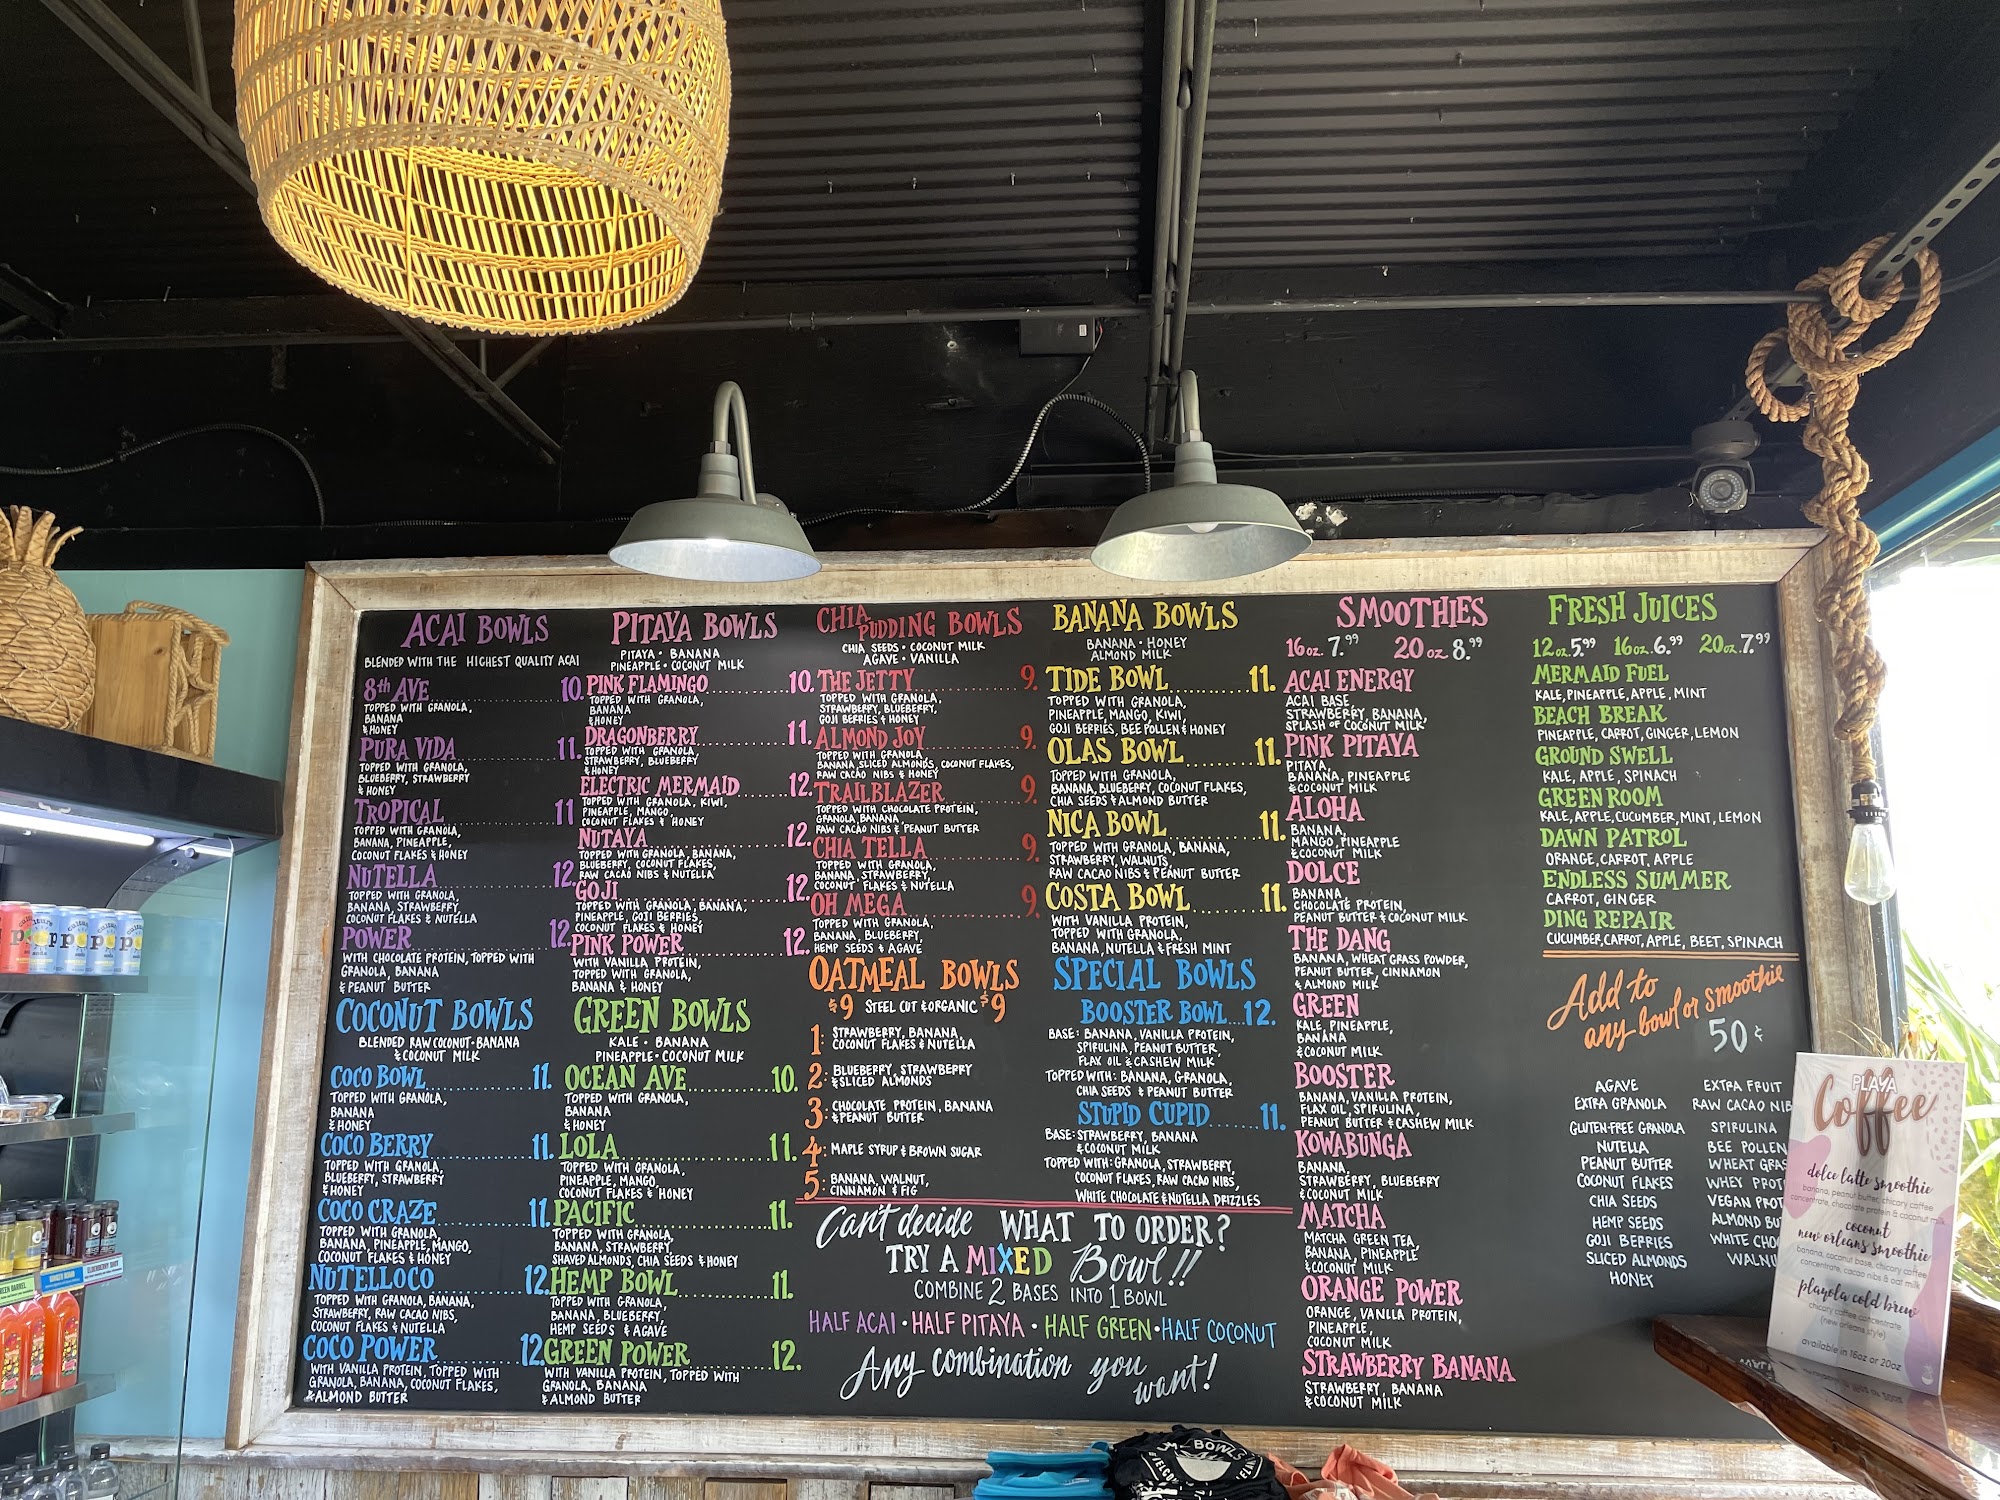 ACAI BOWLS
BLENDED WITH THE HIGHEST QUALITY ACAI
8th AVE 10.
TOPPED WITH GRANOLA,
BANANA
& HONEY
PURA VIDA 11.
TOPPED WITH GRANOLA,
BLUEBERRY, STRAWBERRY
& HONEY
TROPICAL 11
TOPPED WITH GRANOLA,
BANANA, PINEAPPLE,
COCONUT FLAKES & HONEY
NUTELLA 12.
TOPPED WITH GRANOLA,
BANANA, STRAWBERRY,
COCONUT FLAKES & NUTELLA
POWER 12.
WITH CHOCOLATE PROTEIN, TOPPED WITH
GRANOLA, BANANA
& PEANUT BUTTER
COCONUT BOWLS
BLENDED RAW COCONUT · BANANA
& COCONUT MILK
COCO BOWL 11.
TOPPED WITH GRANOLA,
BANANA
& HONEY
COCO BERRY 11.
TOPPED WITH GRANOLA,
BLUEBERRY, STRAWBERRY
& HONEY
COCO CRAZE 11.
TOPPED WITH GRANOLA,
BANANA, PINEAPPLE, MANGO,
COCONUT FLAKES & HONEY
NUTELLOCO 12.
TOPPED WITH GRANOLA, BANANA,
STRAWBERRY, RAW CACAO NIBS,
COCONUT FLAKES & NUTELLA
COCO POWER 12.
WITH VANILLA PROTEIN, TOPPED WITH
GRANOLA, BANANA, COCONUT FLAKES,
& ALMOND BUTTER
PITAYA BOWLS
PITAYA · BANANA
PINEAPPLE · COCONUT MILK
PINK FLAMINGO 10.
TOPPED WITH GRANOLA,
BANANA
& HONEY
DRAGONBERRY 11.
TOPPED WITH GRANOLA,
STRAWBERRY, BLUEBERRY
& HONEY
ELECTRIC MERMAID 12.
TOPPED WITH GRANOLA, KIWI,
PINEAPPLE, MANGO,
COCONUT FLAKES & HONEY
NUTAYA 12.
TOPPED WITH GRANOLA, BANANA,
BLUEBERRY, COCONUT FLAKES,
RAW CACAO NIBS & NUTELLA
GOJI 12.
TOPPED WITH GRANOLA, BANANA,
PINEAPPLE, GOJI BERRIES,
COCONUT FLAKES & HONEY
PINK POWER 12.
WITH VANILLA PROTEIN,
TOPPED WITH GRANOLA,
BANANA & HONEY
GREEN BOWLS
KALE · BANANA
PINEAPPLE · COCONUT MILK
OCEAN AVE 10.
TOPPED WITH GRANOLA,
BANANA
& HONEY
LOLA 11.
TOPPED WITH GRANOLA,
PINEAPPLE, MANGO,
COCONUT FLAKES & HONEY
PACIFIC 11.
TOPPED WITH GRANOLA,
BANANA, STRAWBERRY,
SHAVED ALMONDS, CHIA SEEDS & HONEY
HEMP BOWL 11.
TOPPED WITH GRANOLA,
BANANA, BLUEBERRY,
HEMP SEEDS & AGAVE
GREEN POWER 12.
WITH VANILLA PROTEIN, TOPPED WITH
GRANOLA, BANANA
& ALMOND BUTTER
CHIA PUDDING BOWLS
CHIA SEEDS · COCONUT MILK
AGAVE · VANILLA
THE JETTY 9.
TOPPED WITH GRANOLA,
STRAWBERRY, BLUEBERRY,
GOJI BERRIES & HONEY
ALMOND JOY 9.
TOPPED WITH GRANOLA
BANANA, SLICED ALMONDS, COCONUT FLAKES,
RAW CACAO NIBS & HONEY
TRAILBLAZER 9.
TOPPED WITH CHOCOLATE PROTEIN,
GRANOLA, BANANA,
RAW CACAO NIBS & PEANUT BUTTER
CHIA TELLA 9.
TOPPED WITH GRANOLA,
BANANA, STRAWBERRY,
COCONUT FLAKES & NUTELLA
OH MEGA 9.
TOPPED WITH GRANOLA,
BANANA, BLUEBERRY,
HEMP SEEDS & AGAVE
OATMEAL BOWLS
$9 STEEL CUT & ORGANIC $9
1: STRAWBERRY, BANANA
COCONUT FLAKES & NUTELLA
2: BLUEBERRY, STRAWBERRY
& SLICED ALMONDS
3: CHOCOLATE PROTEIN, BANANA
& PEANUT BUTTER
4: MAPLE SYRUP & BROWN SUGAR
5: BANANA, WALNUT,
CINNAMON & FIG
BANANA BOWLS
BANANA · HONEY
ALMOND MILK
TIDE BOWL 11.
TOPPED WITH GRANOLA,
PINEAPPLE, MANGO, KIWI,
GOJI BERRIES, BEE POLLEN & HONEY
OLAS BOWL 11.
TOPPED WITH GRANOLA,
BANANA, BLUEBERRY, COCONUT FLAKES,
CHIA SEEDS & ALMOND BUTTER
NICA BOWL 11.
TOPPED WITH GRANOLA, BANANA,
STRAWBERRY, WALNUTS,
RAW CACAO NIBS & PEANUT BUTTER
COSTA BOWL 11.
WITH VANILLA PROTEIN,
TOPPED WITH GRANOLA,
BANANA, NUTELLA & FRESH MINT
SPECIAL BOWLS
BOOSTER BOWL 12.
BASE: BANANA, VANILLA PROTEIN,
SPIRULINA, PEANUT BUTTER,
FLAX OIL & CASHEW MILK
TOPPED WITH: BANANA, GRANOLA,
CHIA SEEDS & PEANUT BUTTER
STUPID CUPID 11.
BASE: STRAWBERRY, BANANA
& COCONUT MILK
TOPPED WITH: GRANOLA, STRAWBERRY,
COCONUT FLAKES, RAW CACAO NIBS,
WHITE CHOCOLATE & NUTELLA DRIZZLES
Can't decide WHAT TO ORDER?
TRY A MIXED Bowl!!
COMBINE 2 BASES INTO 1 BOWL
HALF ACAI · HALF PITAYA · HALF GREEN · HALF COCONUT
Any combination you want!
SMOOTHIES
16oz. 7.99 20oz 8.99
ACAI ENERGY
ACAI BASE,
STRAWBERRY, BANANA,
SPLASH OF COCONUT MILK
PINK PITAYA
PITAYA,
BANANA, PINEAPPLE
& COCONUT MILK
ALOHA
BANANA,
MANGO, PINEAPPLE
& COCONUT MILK
DOLCE
BANANA
CHOCOLATE PROTEIN,
PEANUT BUTTER & COCONUT MILK
THE DANG
BANANA, WHEAT GRASS POWDER,
PEANUT BUTTER, CINNAMON
& ALMOND MILK
GREEN
KALE, PINEAPPLE,
BANANA
& COCONUT MILK
BOOSTER
BANANA, VANILLA PROTEIN,
FLAX OIL, SPIRULINA,
PEANUT BUTTER & CASHEW MILK
KOWABUNGA
BANANA,
STRAWBERRY, BLUEBERRY
& COCONUT MILK
MATCHA
MATCHA GREEN TEA,
BANANA, PINEAPPLE
& COCONUT MILK
ORANGE POWER
ORANGE, VANILLA PROTEIN,
PINEAPPLE,
COCONUT MILK
STRAWBERRY BANANA
STRAWBERRY, BANANA
& COCONUT MILK
FRESH JUICES
12oz. 5.99 16oz. 6.99 20oz. 7.99
MERMAID FUEL
KALE, PINEAPPLE, APPLE, MINT
BEACH BREAK
PINEAPPLE, CARROT, GINGER, LEMON
GROUND SWELL
KALE, APPLE, SPINACH
GREEN ROOM
KALE, APPLE, CUCUMBER, MINT, LEMON
DAWN PATROL
ORANGE, CARROT, APPLE
ENDLESS SUMMER
CARROT, GINGER
DING REPAIR
CUCUMBER, CARROT, APPLE, BEET, SPINACH
Add to
any bowl or smoothie
50¢
AGAVE
EXTRA GRANOLA
GLUTEN-FREE GRANOLA
NUTELLA
PEANUT BUTTER
COCONUT FLAKES
CHIA SEEDS
HEMP SEEDS
GOJI BERRIES
SLICED ALMONDS
HONEY
EXTRA FRUIT
RAW CACAO NIB
SPIRULINA
BEE POLLEN
WHEAT GRAS
WHEY PROT
VEGAN PROT
ALMOND BU
WHITE CHOC
WALNU
PLAYA
Coffee
dolce latte smoothie
banana, peanut butter, chicory coffee
concentrate, chocolate protein & coconut milk
coconut
new orleans smoothie
banana, coconut base, chicory coffee
concentrate, cacao nibs & oat milk
playola cold brew
chicory coffee concentrate
(new orleans style)
available in 16oz or 20oz
BOWLS